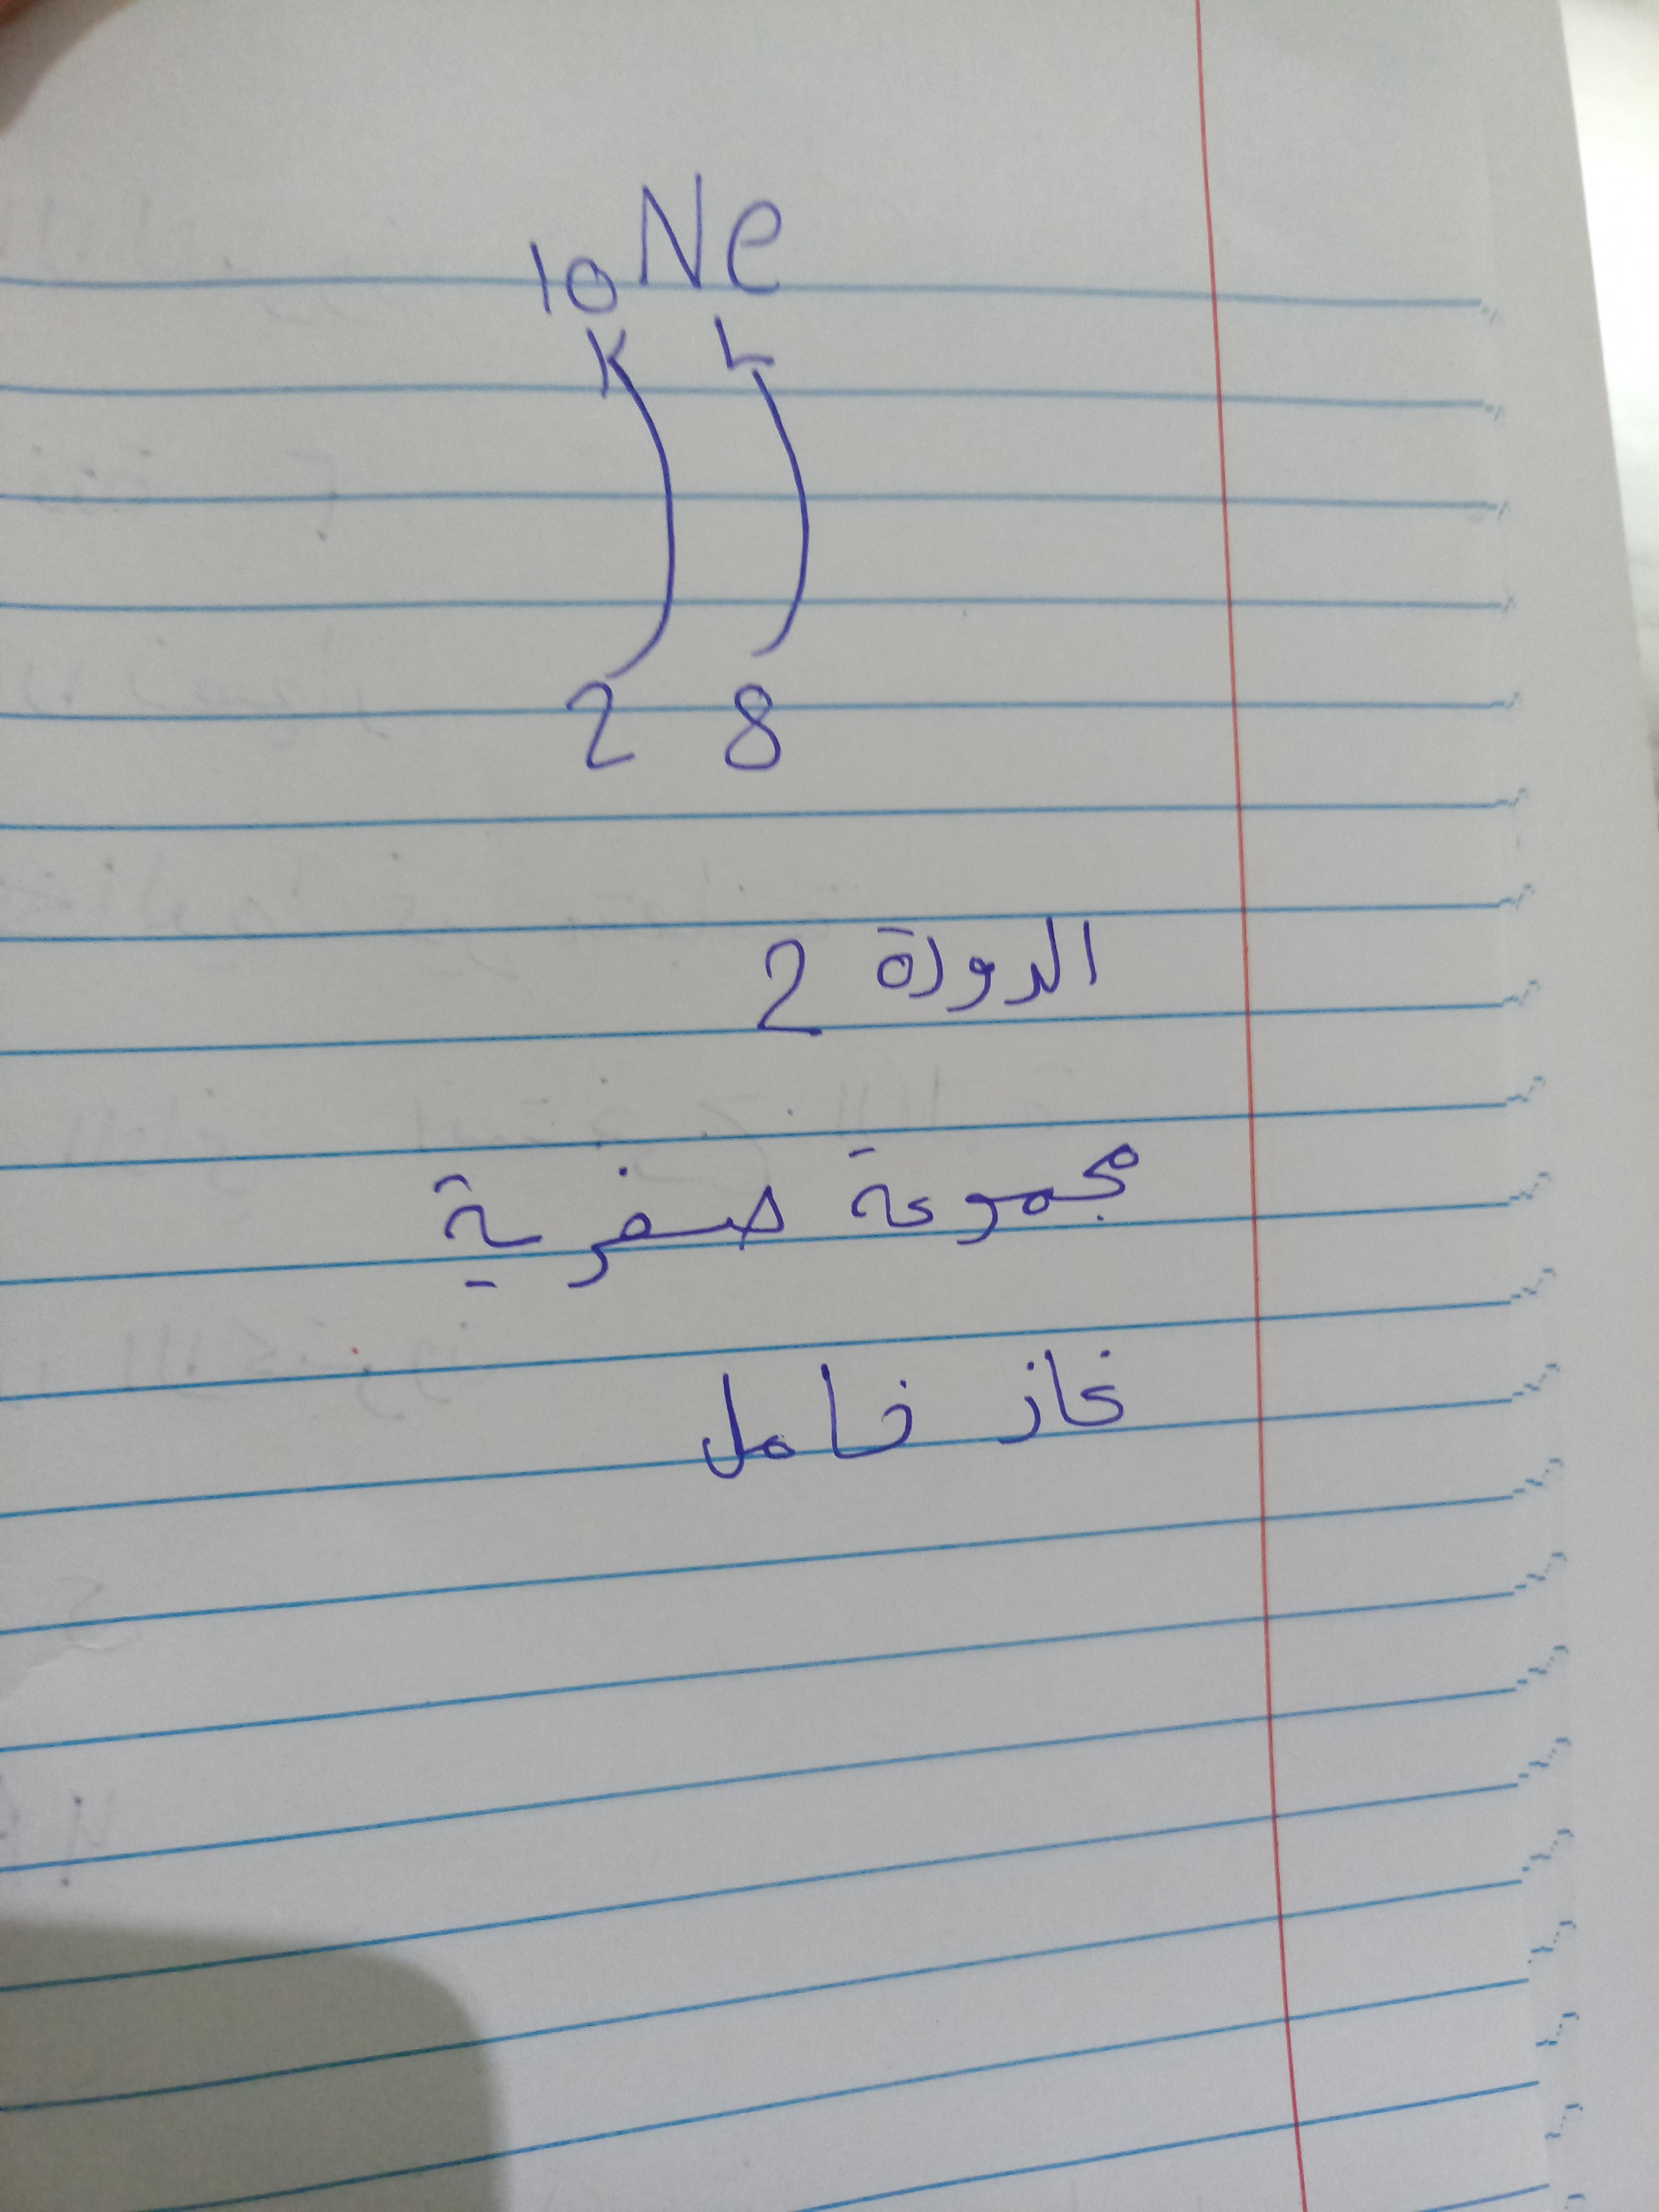 10Ne
K L
2 8
الدورة 2
مجموعة صفرية
غاز خامل